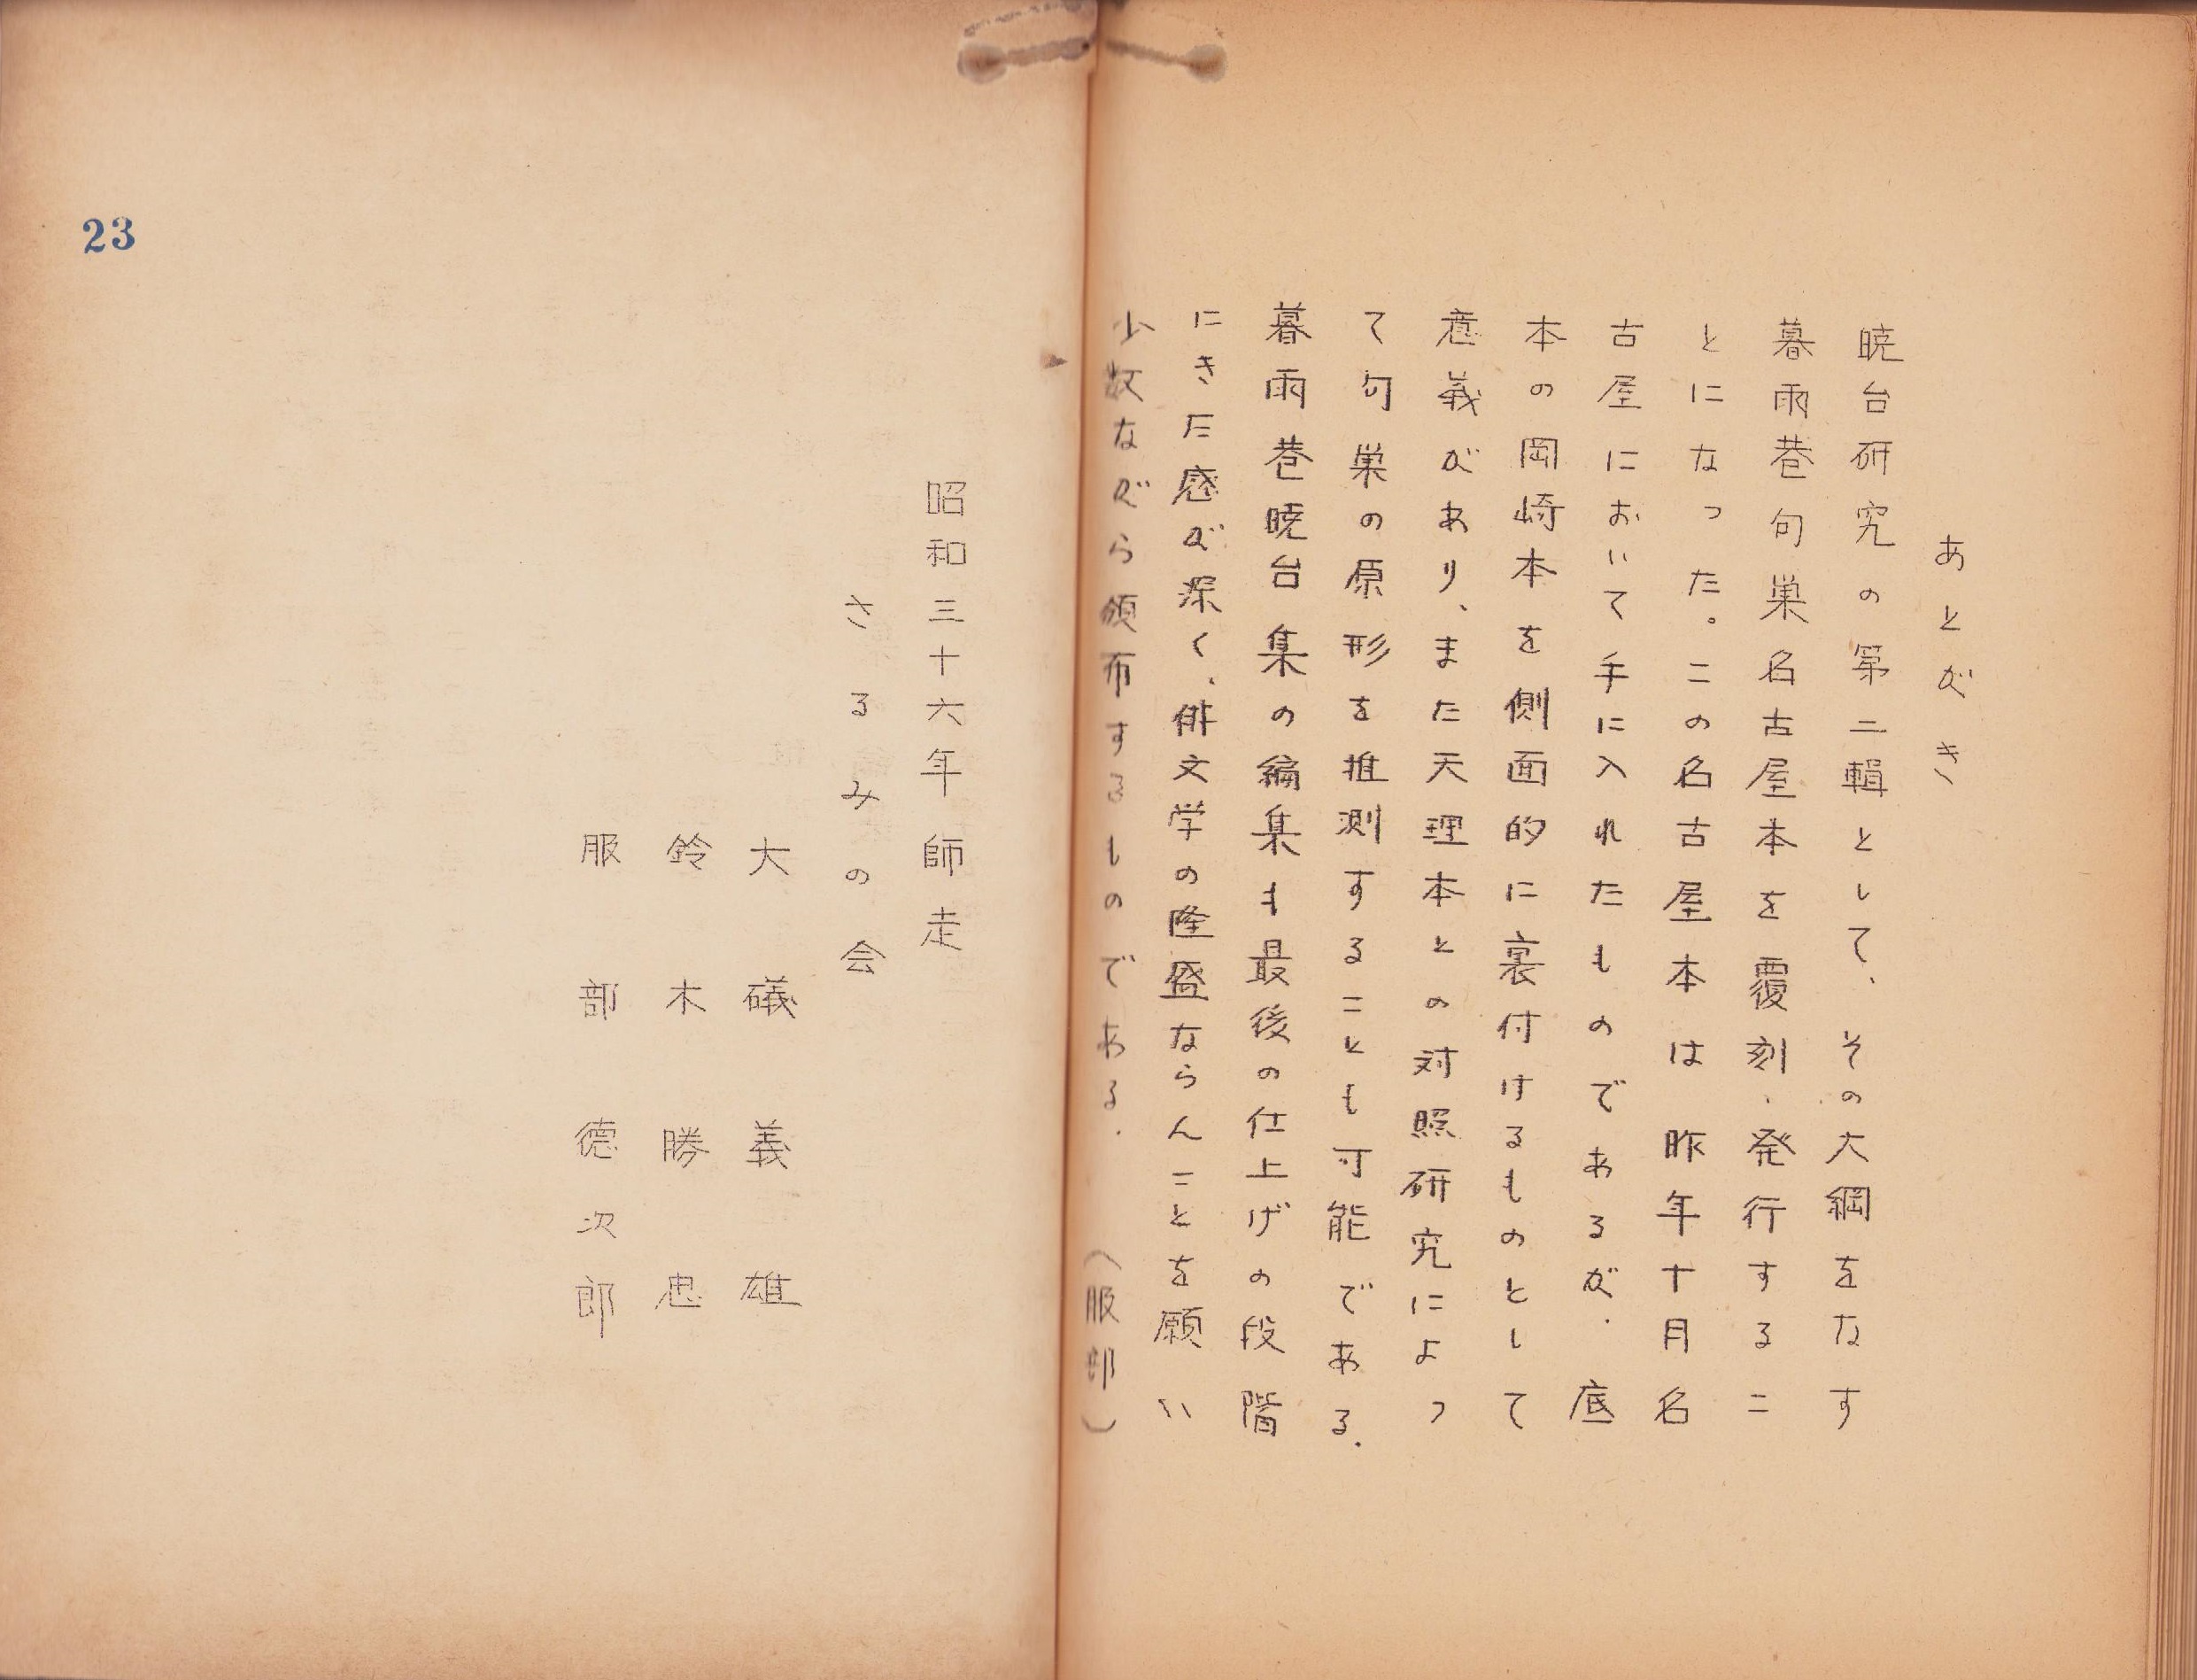 あとがき
暁台研究の第二輯として、その大綱をなす
暮雨巷句巣名古屋本を覆刻、発行するこ
とになった。この名古屋本は昨年十月名
古屋において手に入れたものであるが、底
本の岡崎本を側面的に裏付けるものとして
意義があり、また天理本との対照研究によっ
て句巣の原形を推測することも可能である。
暮雨巷暁台集の編集も最後の仕上げの段階
にきた感が深く、俳文学の隆盛ならんことを願い
少数ながら頒布するものである。 (服部)
昭和三十六年師走
さるみの会
大礒義雄
鈴木勝忠
服部徳次郎
23